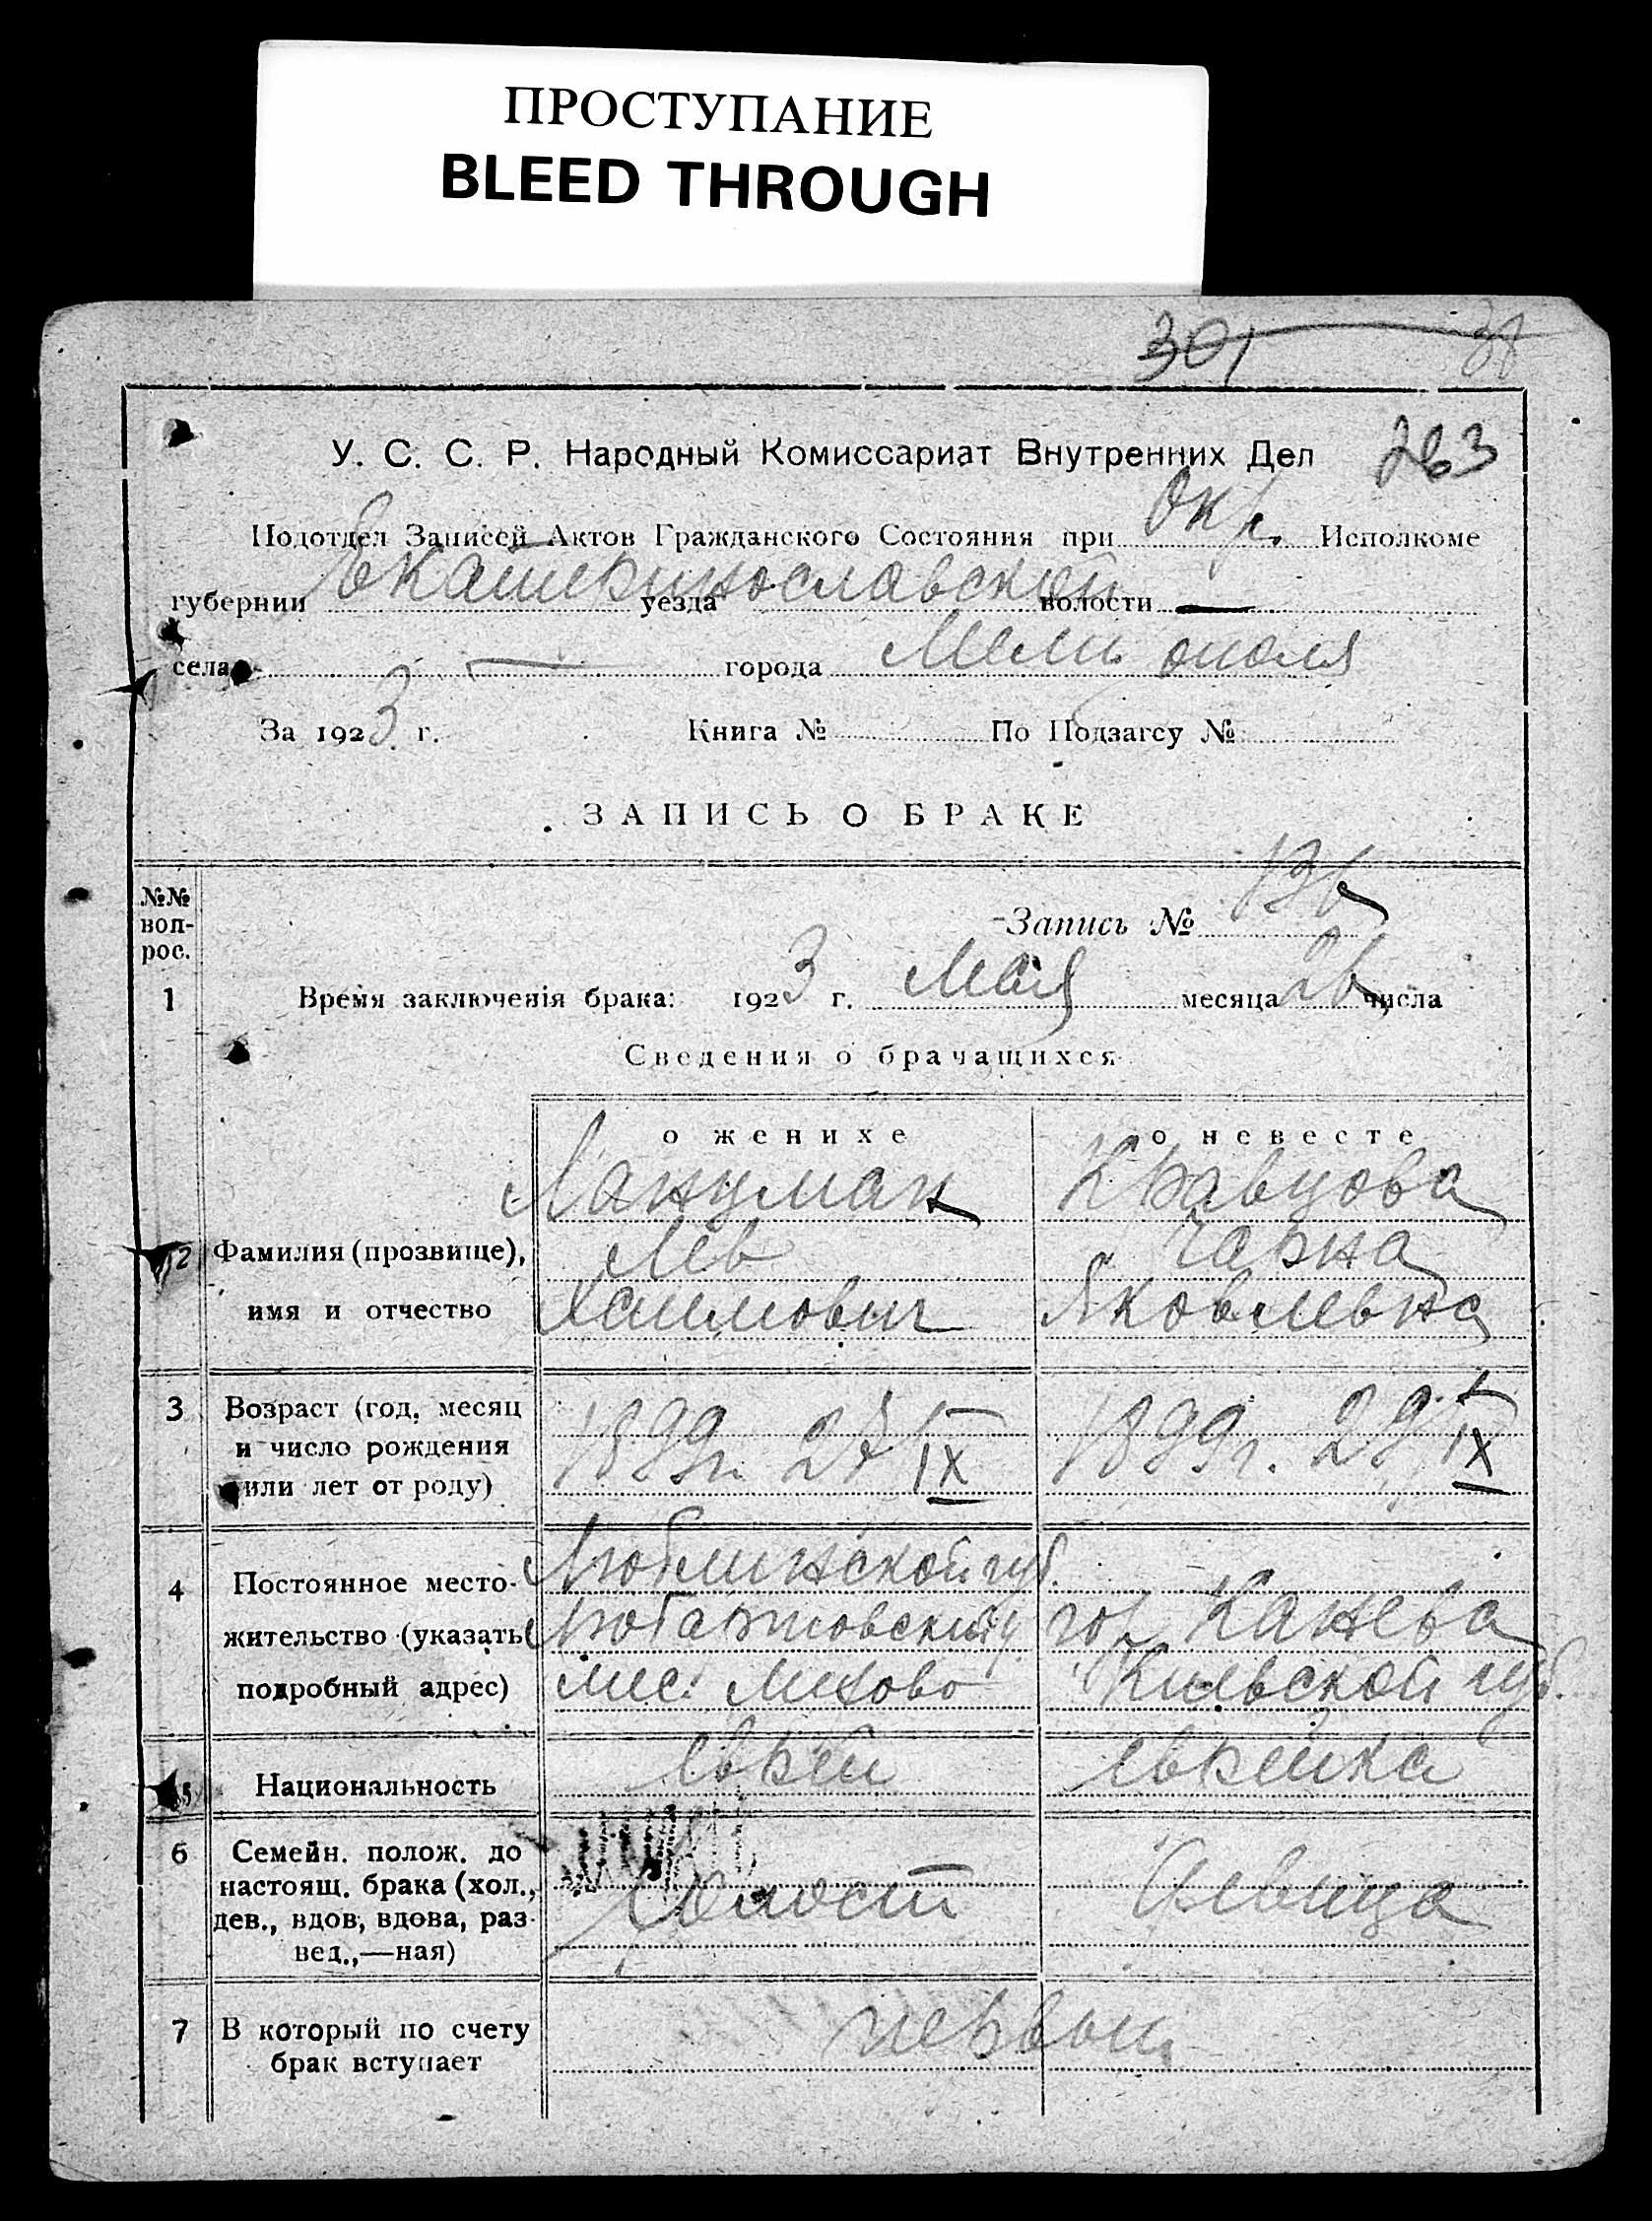 ПРОСТУПАНИЕ
BLEED THROUGH
301 38
У. С. С. Р. Народный Комиссариат Внутренних Дел 263
Подотдел Записей Актов Гражданского Состояния при Окр. Исполкоме
губернии Екатеринославской уезда волости —
села — города Мелитополя
За 1923 г. Книга № По Подзагсу №
ЗАПИСЬ О БРАКЕ
№№ воп-рос.
Запись № 136
1 Время заключенія брака: 1923 г. Мая месяца 26 числа
Сведения о брачащихся
о женихе о невесте
Ланцман Кравцова
2 Фамилия (прозвище), Лев Чарна
имя и отчество Хаимович Яковлевна
3 Возраст (год, месяц
и число рождения 1899г. 27 IX 1899г. 29 IX
или лет от роду)
Люблинской губ.
4 Постоянное место-
жительство (указать Любартовский у. гор. Канева
подробный адрес) мес. Михово Киевской губ.
5 Национальность еврей еврейка
6 Семейн. полож. до
настоящ. брака (хол., Холост девица
дев., вдов, вдова, раз-
вед.,—ная)
7 В который по счету первый
брак вступает